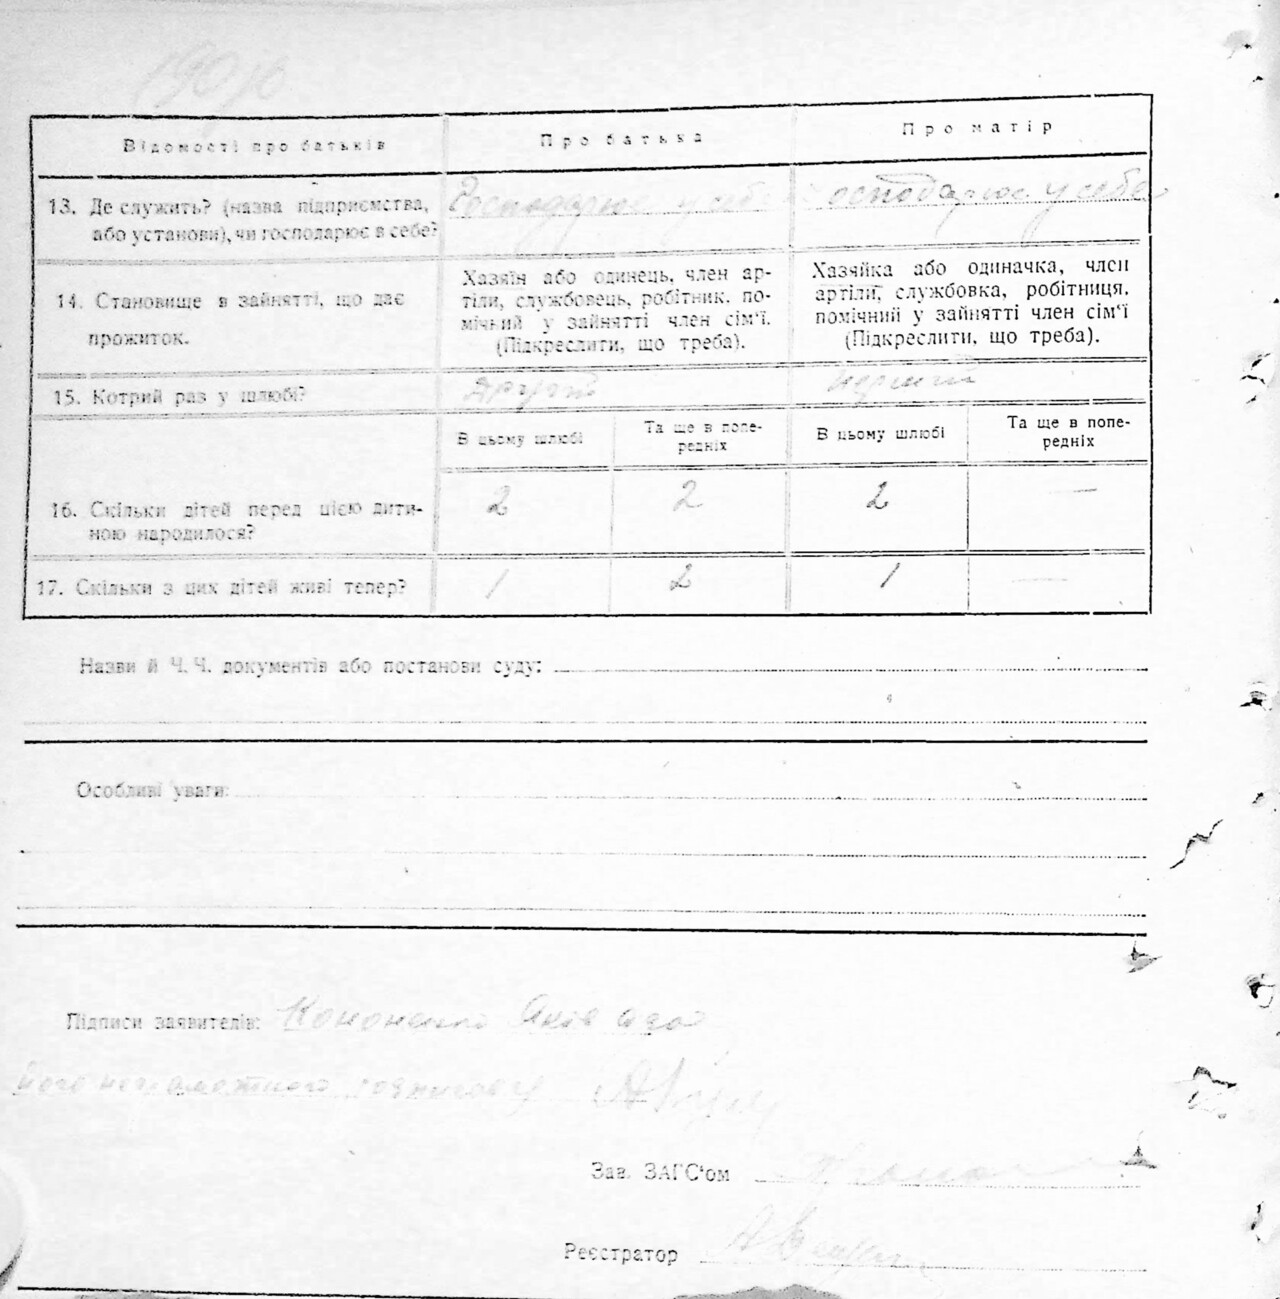 Відомості про батьків
Про батька
Про матір
13. Де служить? (назва підприємства,
або установи), чи господарює в себе?
Господарює у себе
господарює у себе
14. Становище в зайнятті, що дає
прожиток.
Хазяїн або одинець, член ар-
тіли, службовець, робітник, по-
мічний у зайнятті член сім‘ї.
(Підкреслити, що треба).
Хазяйка або одиначка, член
артіли, службовка, робітниця,
помічний у зайнятті член сім‘ї
(Підкреслити, що треба).
15. Котрий раз у шлюбі?
Другий
Перший
В цьому шлюбі
Та ще в попе-
редніх
В цьому шлюбі
Та ще в попе-
редніх
16. Скільки дітей перед цією дити-
ною народилося?
2
2
2
—
17. Скільки з цих дітей живі тепер?
1
2
1
—
Назви й Ч. Ч. документів або постанови суду:
Особливі уваги:
Підписи заявителів: Кононенко Яків
Зав. ЗАГС‘ом
Реєстратор